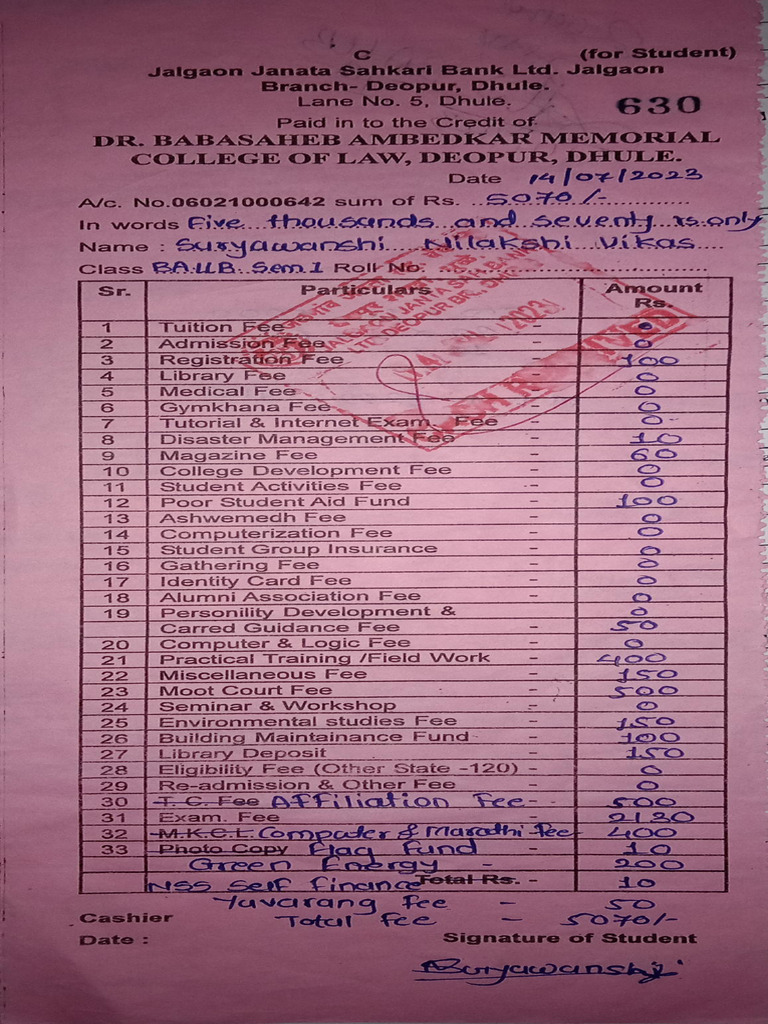 C (for Student)
Jalgaon Janata Sahkari Bank Ltd. Jalgaon
Branch- Deopur, Dhule.
Lane No. 5, Dhule. 630
Paid in to the Credit of
DR. BABASAHEB AMBEDKAR MEMORIAL
COLLEGE OF LAW, DEOPUR, DHULE.
Date 14/07/2023
A/c. No.06021000642 sum of Rs. 5070/-
In words Five thousands and seventy rs. only
Name : Suryawanshi Nilakshi Vikas
Class BA.LLB. Sem 1 Roll No.
Sr. Particulars Amount Rs.
1 Tuition Fee - 0
2 Admission Fee 0
3 Registration Fee 100
4 Library Fee 0
5 Medical Fee 0
6 Gymkhana Fee 0
7 Tutorial & Internet Exam. Fee - 0
8 Disaster Management Fee - 10
9 Magazine Fee - 60
10 College Development Fee - 0
11 Student Activities Fee - 0
12 Poor Student Aid Fund - 100
13 Ashwemedh Fee - 0
14 Computerization Fee - 0
15 Student Group Insurance - 0
16 Gathering Fee - 0
17 Identity Card Fee - 0
18 Alumni Association Fee - 0
19 Personility Development & 0
Carred Guidance Fee - 50
20 Computer & Logic Fee - 0
21 Practical Training /Field Work - 400
22 Miscellaneous Fee - 150
23 Moot Court Fee - 500
24 Seminar & Workshop - 0
25 Environmental studies Fee - 150
26 Building Maintainance Fund - 100
27 Library Deposit - 150
28 Eligibility Fee (Other State -120) - 0
29 Re-admission & Other Fee - 0
30 T. C. Fee Affiliation Fee - 500
31 Exam. Fee - 2130
32 M.K.C.L. Computer & Marathi Fee 400
33 Photo Copy Flag Fund - 10
Green Energy - 200
NSS Self Finance Total Rs. - 10
Yuvarang Fee - 50
Cashier Total Fee - 5070/-
Date : Signature of Student
Suryawanshi
JALGAON JANATA SAH. BANK
LTD. DEOPUR BR. DHULE
CASH RECEIVED